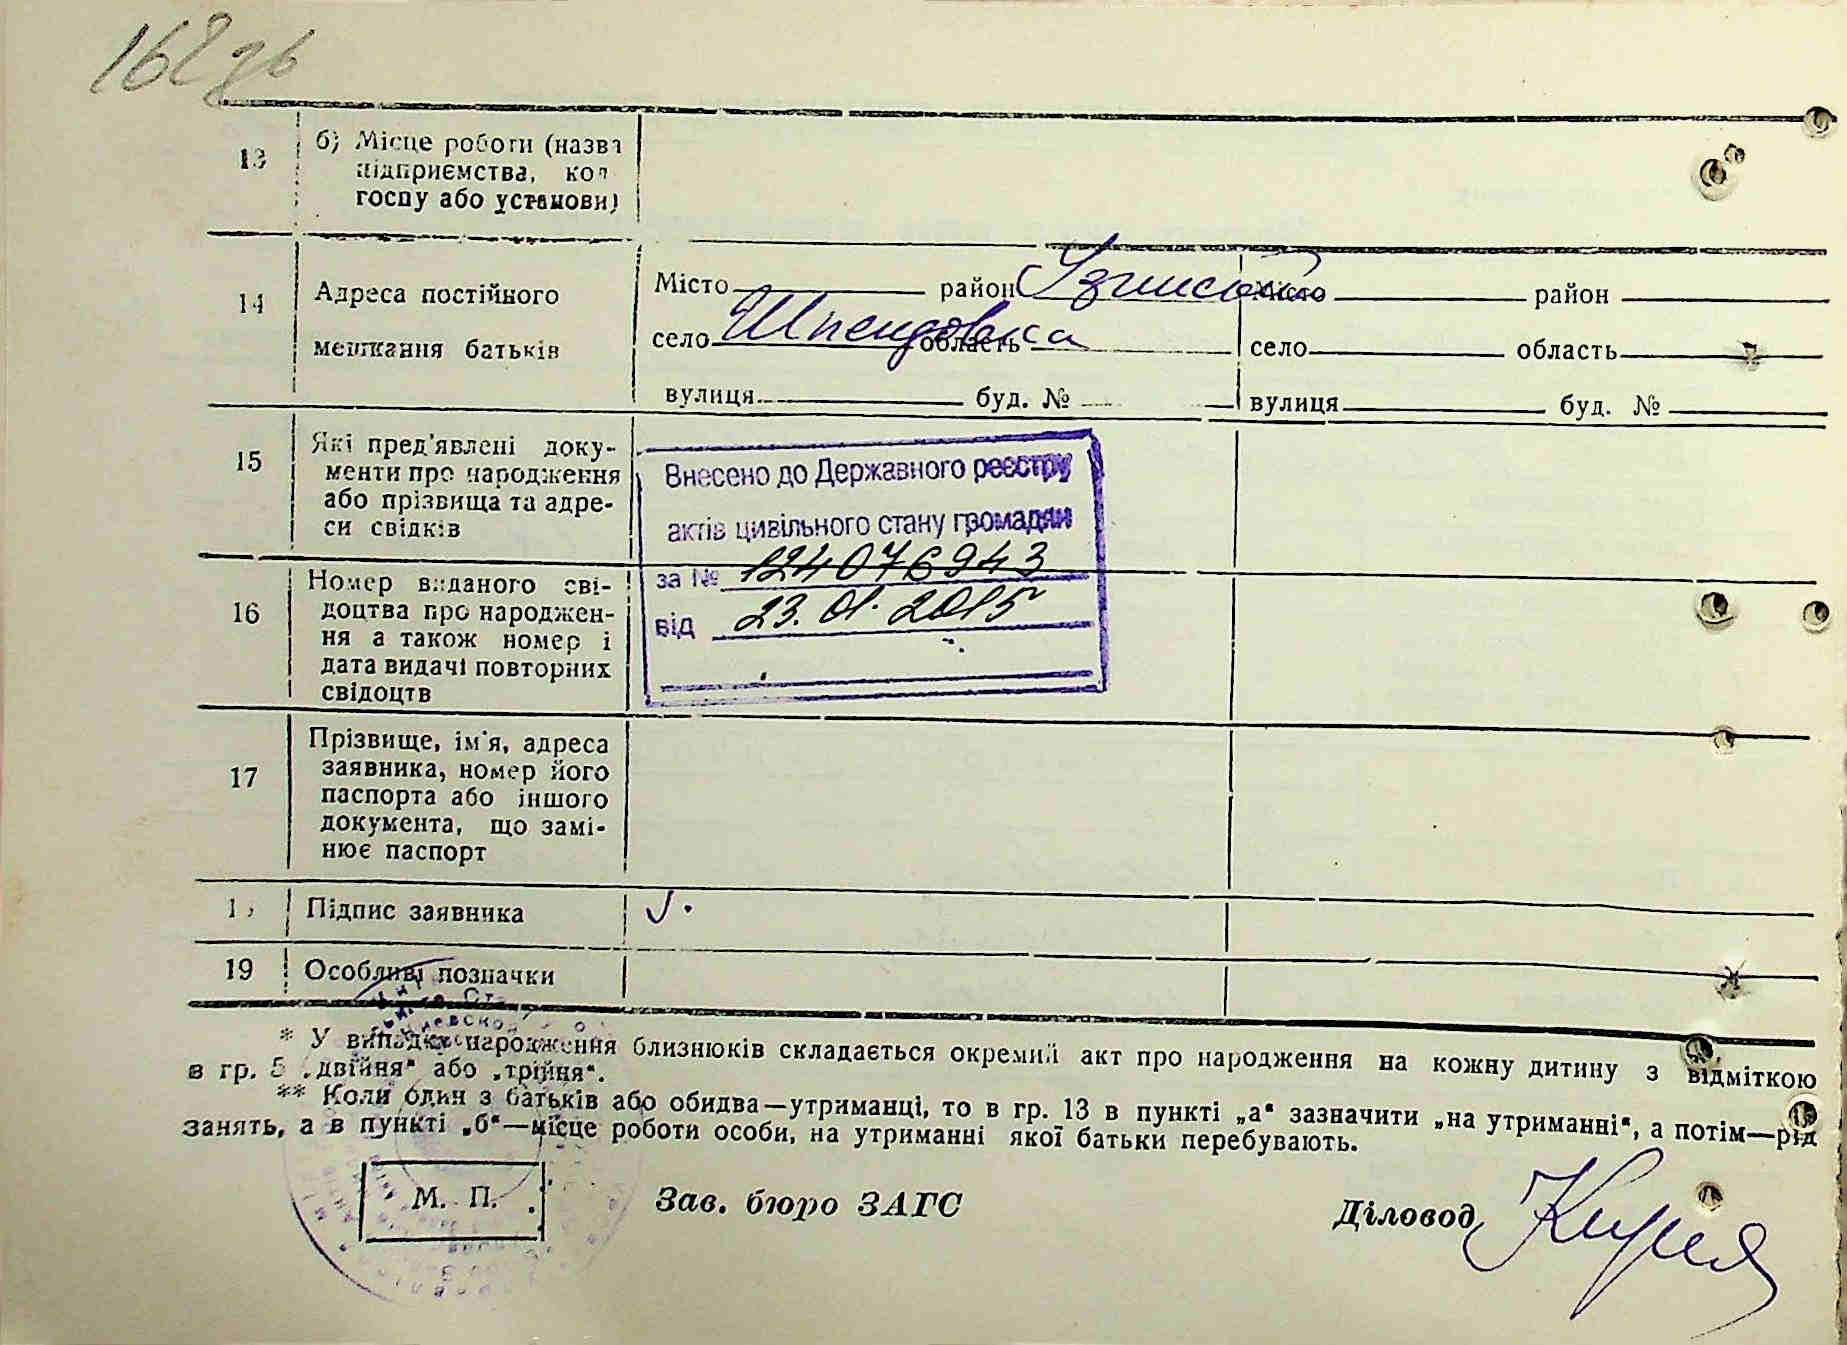 168 зв
13 б) Місце роботи (назва
підприємства, кол-
госпу або установи)
14 Адреса постійного
мешкання батьків
Місто район Узинський
село Шпендовка область
вулиця буд. №
Місто район
село область
вулиця буд. №
15 Які пред'явлені доку-
менти про народження
або прізвища та адре-
си свідків
Внесено до Державного реєстру
актів цивільного стану громадян
за № 124076943
від 23.01.2015
16 Номер виданого сві-
доцтва про народжен-
ня а також номер і
дата видачі повторних
свідоцтв
17 Прізвище, ім'я, адреса
заявника, номер його
паспорта або іншого
документа, що замі-
нює паспорт
Підпис заявника
19 Особливі позначки
* У випадку народження близнюків складається окремий акт про народження на кожну дитину з відміткою
в гр. 5 „двійня" або „трійня".
** Коли один з батьків або обидва—утриманці, то в гр. 13 в пункті „а" зазначити „на утриманні", а потім—рід
занять, а в пункті „б"—місце роботи особи, на утриманні якої батьки перебувають.
М. П.
Зав. бюро ЗАГС
Діловод